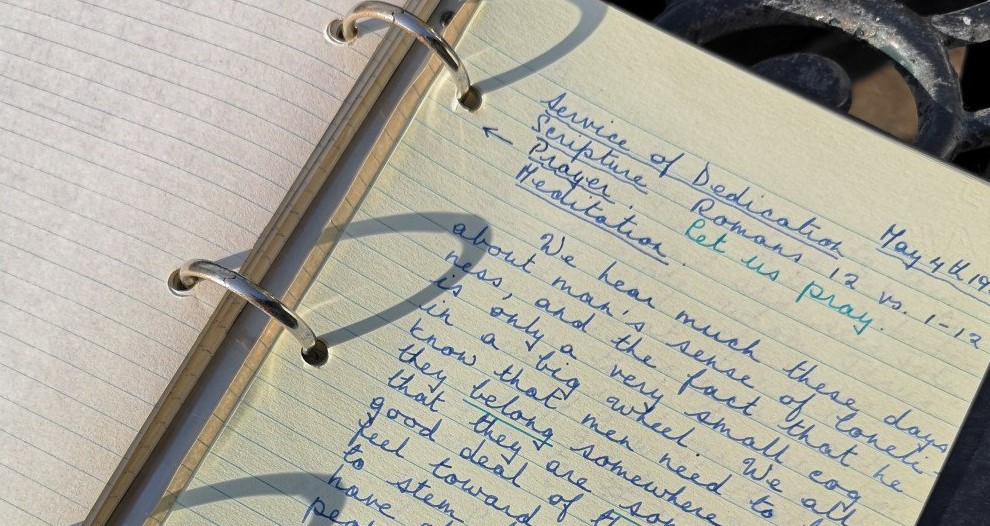 Service of Dedication May 4th 19
Scripture Romans 12 vs. 1-12
← Prayer. Let us pray.
Meditation.
We hear much these days
about man's sense of loneli-
ness, and the fact that he
is only a very small cog
in a big wheel. We all
know that men need to
they belong somewhere
that they are
good deal of
feel toward
to stem
have